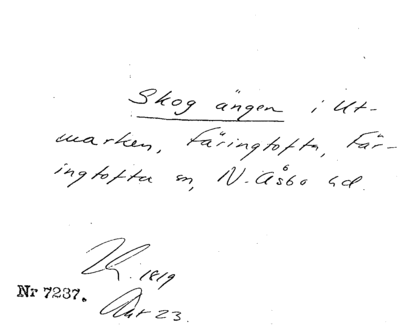 Skog ängen i Ut-
marken, Färingtofta, Fär-
ingtofta sn, N. Åsbo hd.
1819
Nr 7237. Akt 23.